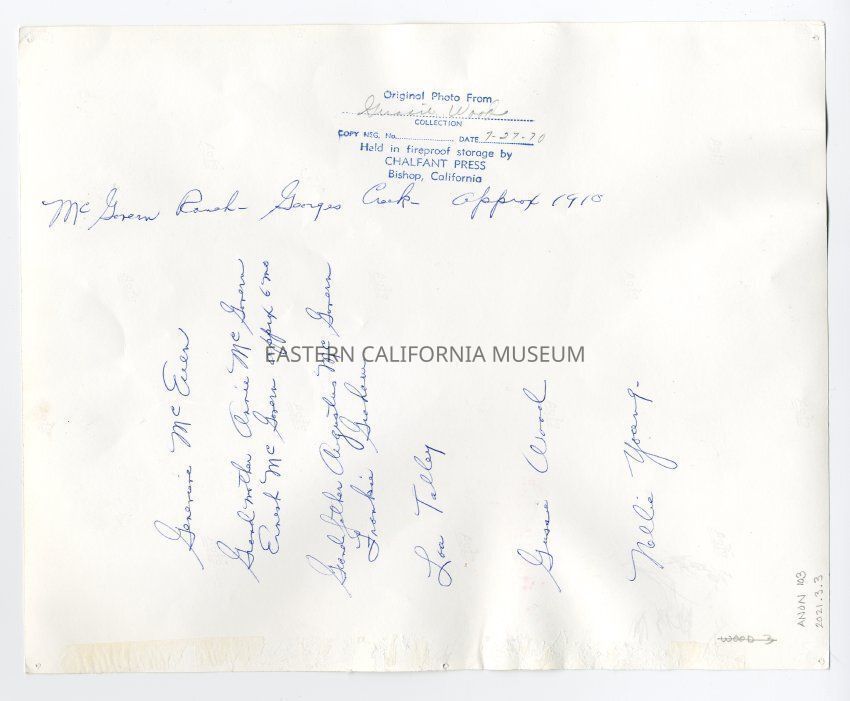 Original Photo From
Gussie Wood
COLLECTION
COPY NEG. No. DATE 7-27-70
Held in fireproof storage by
CHALFANT PRESS
Bishop, California
Mc Govern Ranch - Georges Creek - approx 1910
Genevieve Mc Ewen
Grandmother Annie Mc Govern
Ernest Mc Govern approx 6 mo
Grandfather Augustus Mc Govern
Frankie Graham
Lou Talley
Gussie Wood
Nellie Young -
EASTERN CALIFORNIA MUSEUM
WOOD 3
ANON 103
2021.3.3